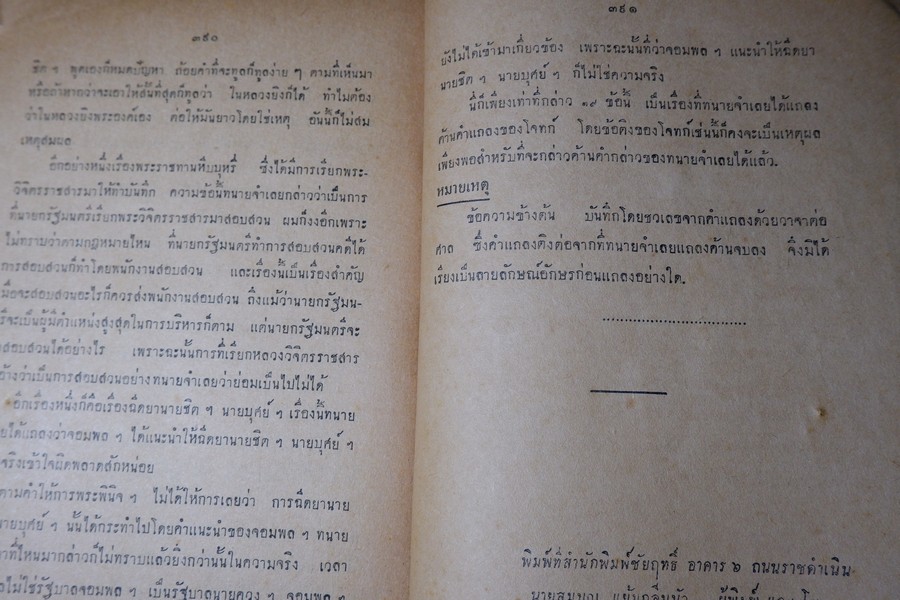 ๓๙๐
ชิต ฯ พูดเองก็หมดปัญหา ถ้อยคำที่จะทูลก็ทูลง่าย ๆ ตามที่เห็นมา
หรือถ้าหากว่าจะเอาให้สั้นที่สุดก็ทูลว่า ในหลวงยิงก็ได้ ทำไมต้อง
ว่าในหลวงยิงพระองค์เอง ต่อให้มันยาวโดยใช่เหตุ อันนี้ก็ไม่สม
เหตุสมผล
อีกอย่างหนึ่งเรื่องพระราชทานหีบบุหรี่ ซึ่งได้มีการเรียกพระ-
วิจิตรราชสารมาให้ทำบันทึก ความข้อนี้ทนายจำเลยกล่าวว่าเป็นการ
ที่นายกรัฐมนตรีเรียกพระวิจิตรราชสารมาสอบสวน ผมก็งงอีกเพราะ
ไม่ทราบว่าตามกฎหมายไหน ที่นายกรัฐมนตรีทำการสอบสวนคดีได้
การสอบสวนก็ทำโดยพนักงานสอบสวน และเรื่องนี้เป็นเรื่องสำคัญ
เมื่อจะสอบสวนอะไรก็ควรส่งพนักงานสอบสวน ถึงแม้ว่านายกรัฐมน-
รีจะเป็นผู้มีตำแหน่งสูงสุดในการบริหารก็ตาม แต่นายกรัฐมนตรีจะ
สอบสวนได้อย่างไร เพราะฉะนั้นการที่เรียกหลวงวิจิตรราชสาร
อ้างว่าเป็นการสอบสวนอย่างทนายจำเลยว่าย่อมเป็นไปไม่ได้
อีกเรื่องหนึ่งก็คือเรื่องฉีดยานายชิต ฯ นายบุศย์ ฯ เรื่องนี้ทนาย
ได้แถลงว่าจอมพล ฯ ได้แนะนำให้ฉีดยานายชิต ฯ นายบุศย์ ฯ
จริงเข้าใจผิดพลาดสักหน่อย
ตามคำให้การพระพินิจ ฯ ไม่ได้ให้การเลยว่า การฉีดยานาย
นายบุศย์ ฯ นั้นได้กระทำไปโดยคำแนะนำของจอมพล ฯ ทนาย
าที่ไหนมากล่าวก็ไม่ทราบแล้วยิ่งกว่านั้นในความจริง เวลา
ไม่ใช่รัฐบาลจอมพล ฯ เป็นรัฐบาลนายควง ฯ จอมพล ฯ
๓๙๑
ยังไม่ได้เข้ามาเกี่ยวข้อง เพราะฉะนั้นที่ว่าจอมพล ฯ แนะนำให้ฉีดยา
นายชิต ฯ นายบุศย์ ฯ ก็ไม่ใช่ความจริง
นี่ก็เพียงเท่าที่กล่าว ๑๙ ข้อนี้ เป็นเรื่องที่ทนายจำเลยได้แถลง
ค้านคำแถลงของโจทก์ โดยข้อติงของโจทก์เช่นนี้ก็คงจะเป็นเหตุผล
เพียงพอสำหรับที่จะกล่าวค้านคำกล่าวของทนายจำเลยได้แล้ว.
หมายเหตุ
ข้อความข้างต้น บันทึกโดยชวเลขจากคำแถลงด้วยวาจาต่อ
ศาล ซึ่งคำแถลงติงต่อจากที่ทนายจำเลยแถลงค้านจบลง จึงมิได้
เรียงเป็นลายลักษณ์อักษรก่อนแถลงอย่างใด.
พิมพ์ที่สำนักพิมพ์ชัยฤทธิ์ อาคาร ๖ ถนนราชดำเนิน
นายสมบูญ แย้มกลิ่นบัว ผู้พิมพ์